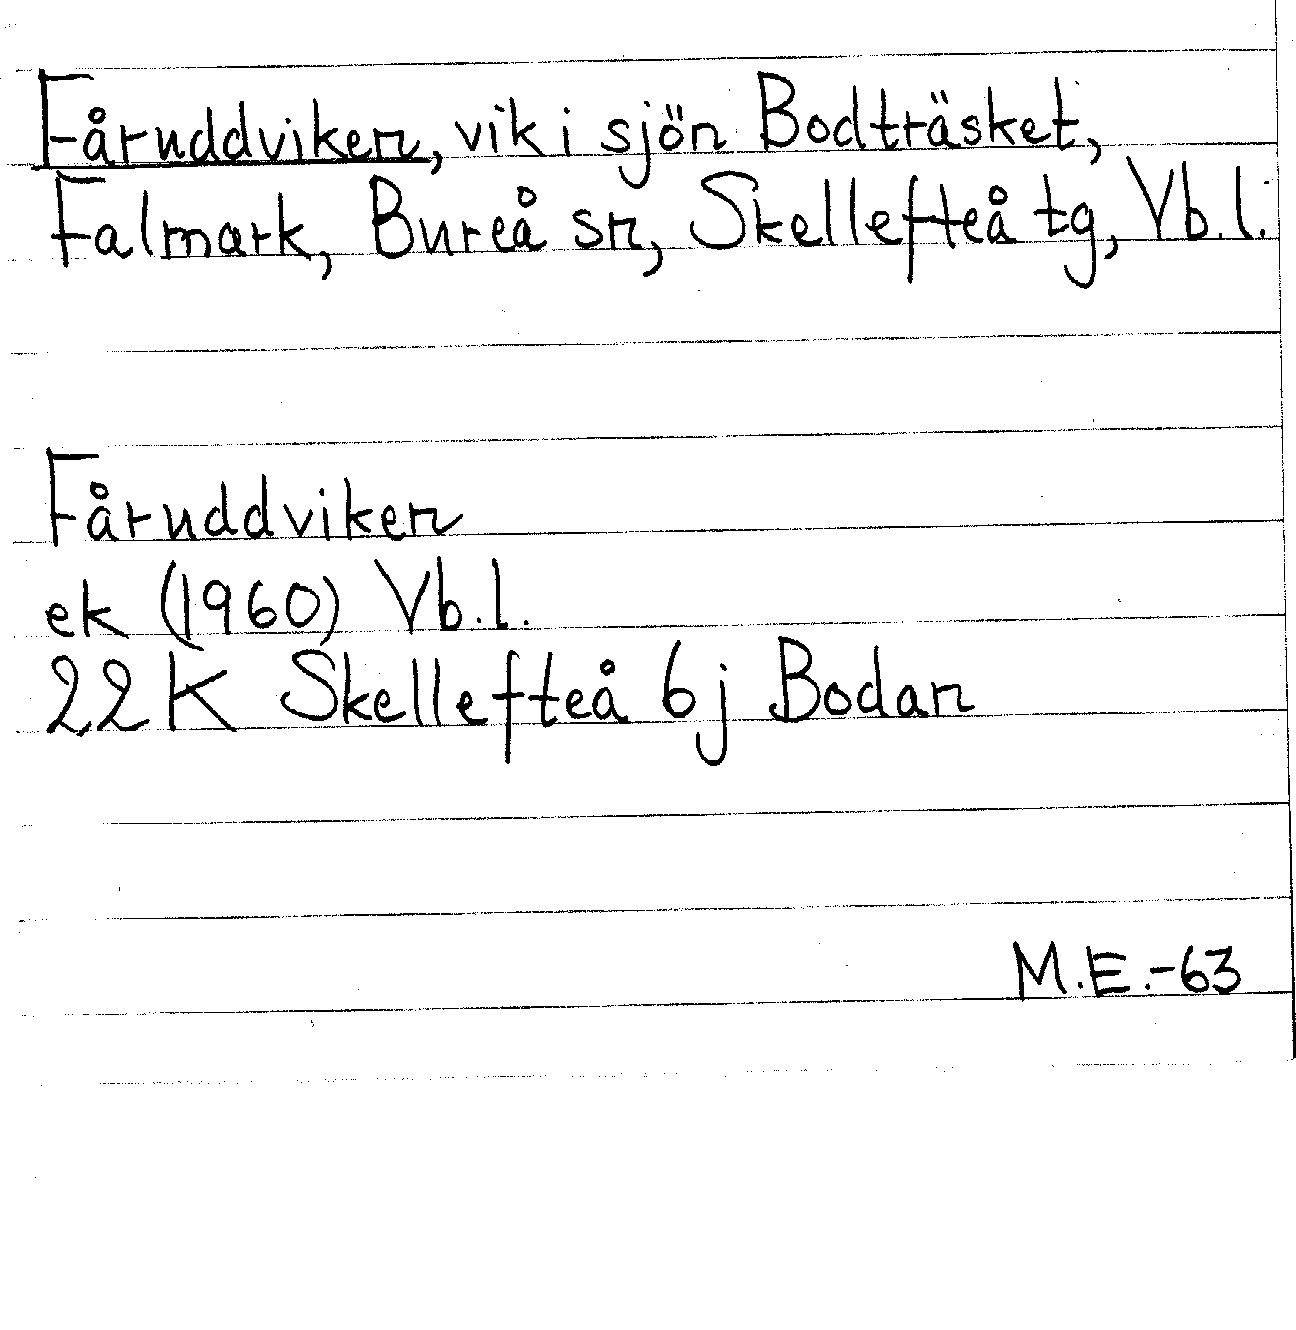 Fåruddviken, vik i sjön Bodträsket,
Falmark, Bureå sn, Skellefteå tg, Vb.l.
Fåruddviken
ek (1960) Vb.l.
22 K Skellefteå 6j Bodan
M.E.-63